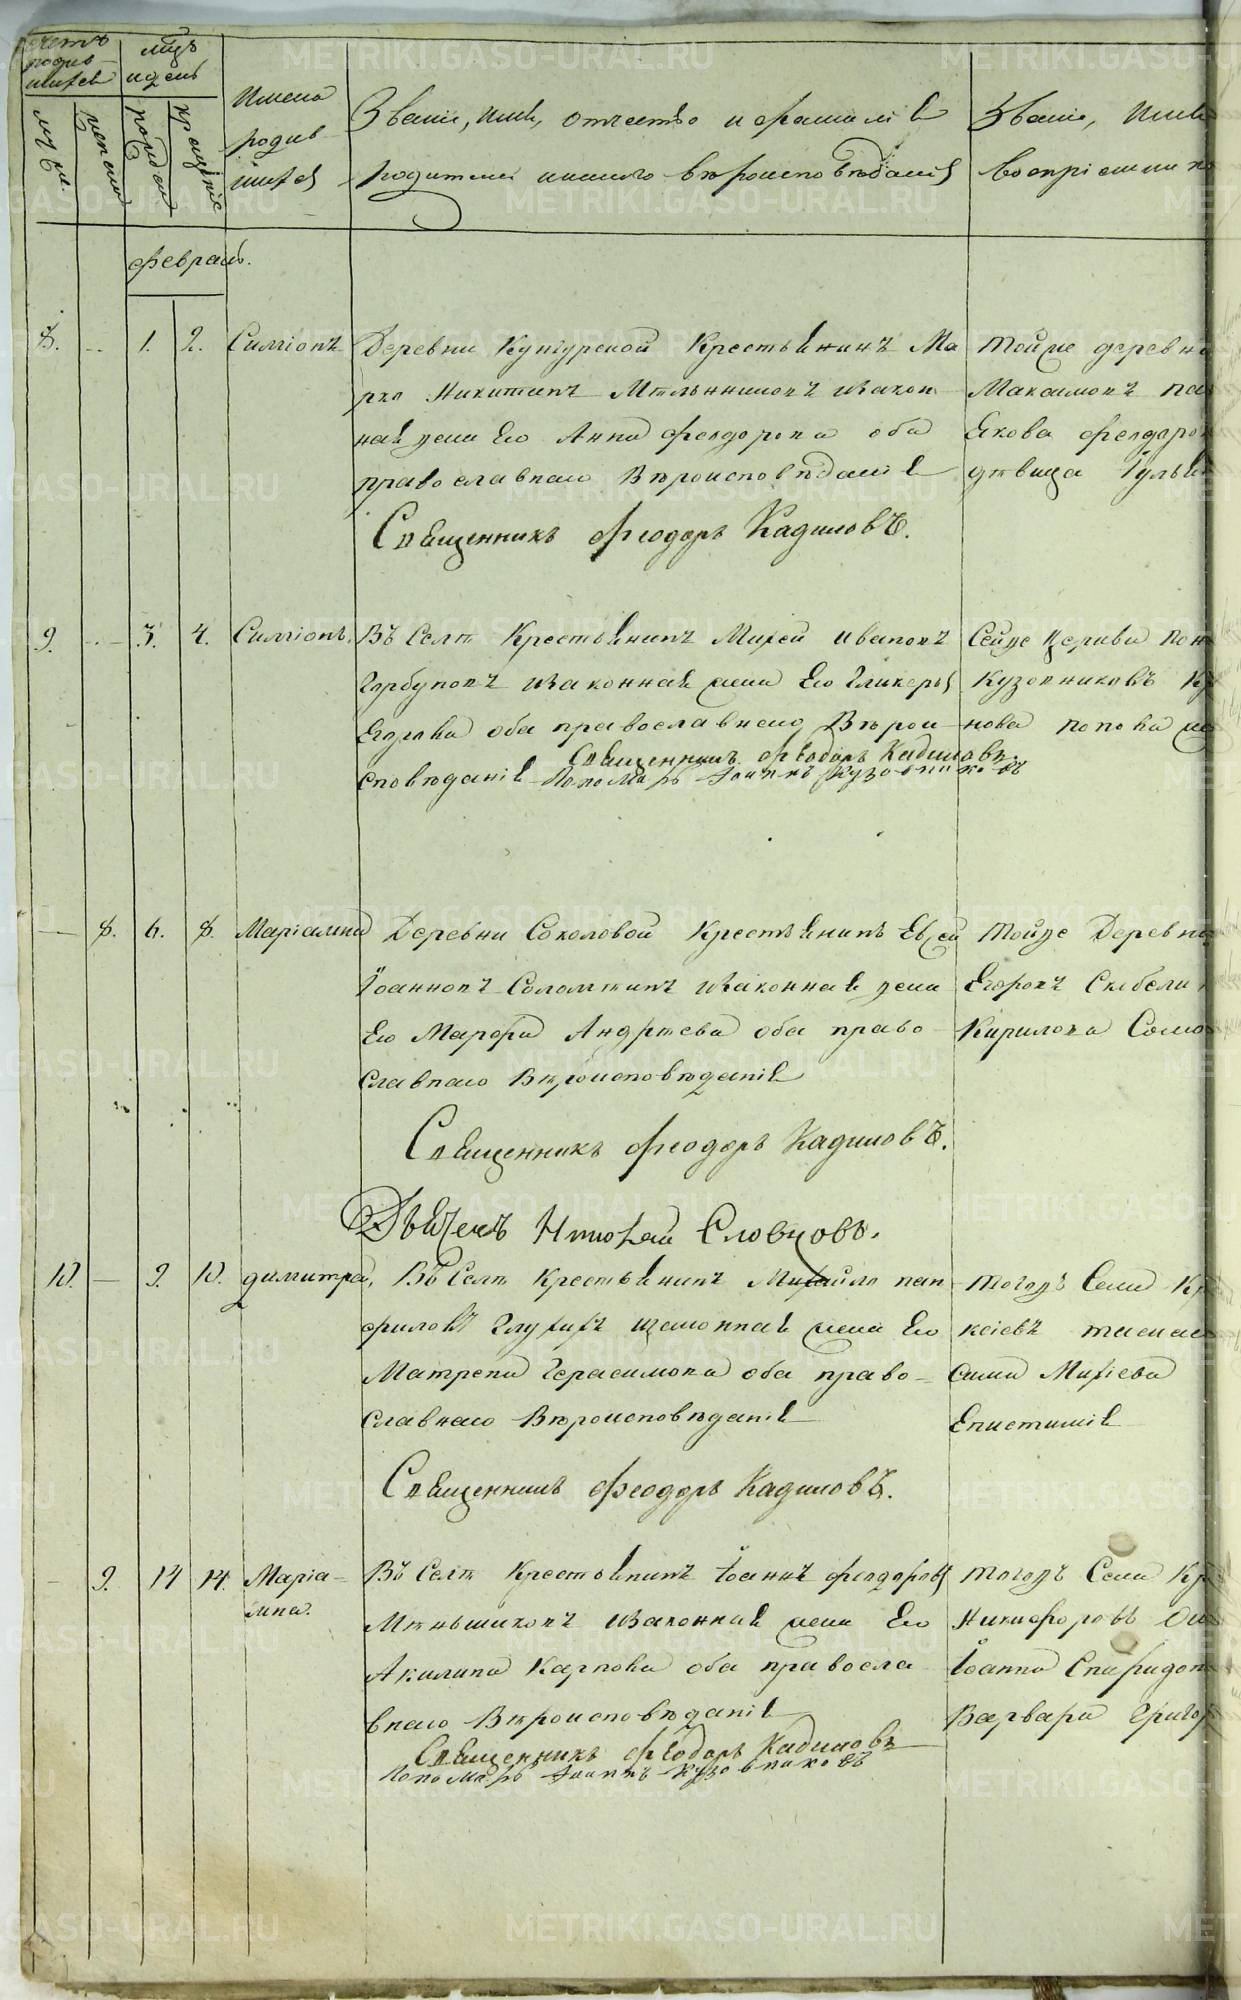 счетъ родив-шихся
мѣсяцъ и день
Имена родив-шихся
Званіе, имя, отчество и фамилія
родителей и какого вѣроисповѣданія
Званіе, имя
воспріемнико
муж.
женск.
рожден
крещеніе
февраль.
8. 1. 2. Симеонъ
Деревни Кунгурской Крестьянинъ Ма
рко Никитинъ Мѣльниковъ и закон
ная жена Его Анна Феодорова оба
православнаго Вѣроисповѣданія
Священникъ Феодоръ Кадиловъ.
Тойже деревни
Максимовъ
Екова Феодоров
дѣвица Іулья
9. 3. 4. Симеонъ.
Въ Селѣ Крестьянинъ Михей Ивановъ
Горбуновъ и законная жена Его Гликерья
Егорова оба православнаго Вѣрои-
сповѣданія
Священникъ Феодоръ Кадиловъ.
Пономарь Іоаннъ Кузовниковъ
Сейже Церкви Пон
Кузовниковъ
нова попова
8. 6. 8. Маріамна
Деревни Соколовой Крестьянинъ Евсей
Іоанновъ Соломѣинъ и законная жена
Его Марфа Андрѣева оба право-
славнаго Вѣроисповѣданія
Священникъ Феодоръ Кадиловъ.
Дьячекъ Николай Словцовъ.
Тойже Деревни
Егоровъ
Кирилова Соло
10. 9. 10. Димитрей,
Въ Селѣ Крестьянинъ Михайло пан-
филовъ Глухихъ и законная жена Его
Матрена Герасимова оба право-
славнаго Вѣроисповѣданія
Священникъ Феодоръ Кадиловъ.
Тогожъ Села Кр
Михіева
Епистимія
9. 14 14. Маріа-
мна.
Въ Селѣ Крестьянинъ Іоаннъ Феодоровъ
Мѣньшиковъ и законная жена Его
Акилина Карпова оба правосла
внаго Вѣроисповѣданія
Священникъ Феодоръ Кадиловъ
Пономарь Іоаннъ Кузовниковъ
Тогожъ Села Кр
Никифоровъ
Іоанна Спиридон
Варвара Григор
METRIKI.GASO-URAL.RU